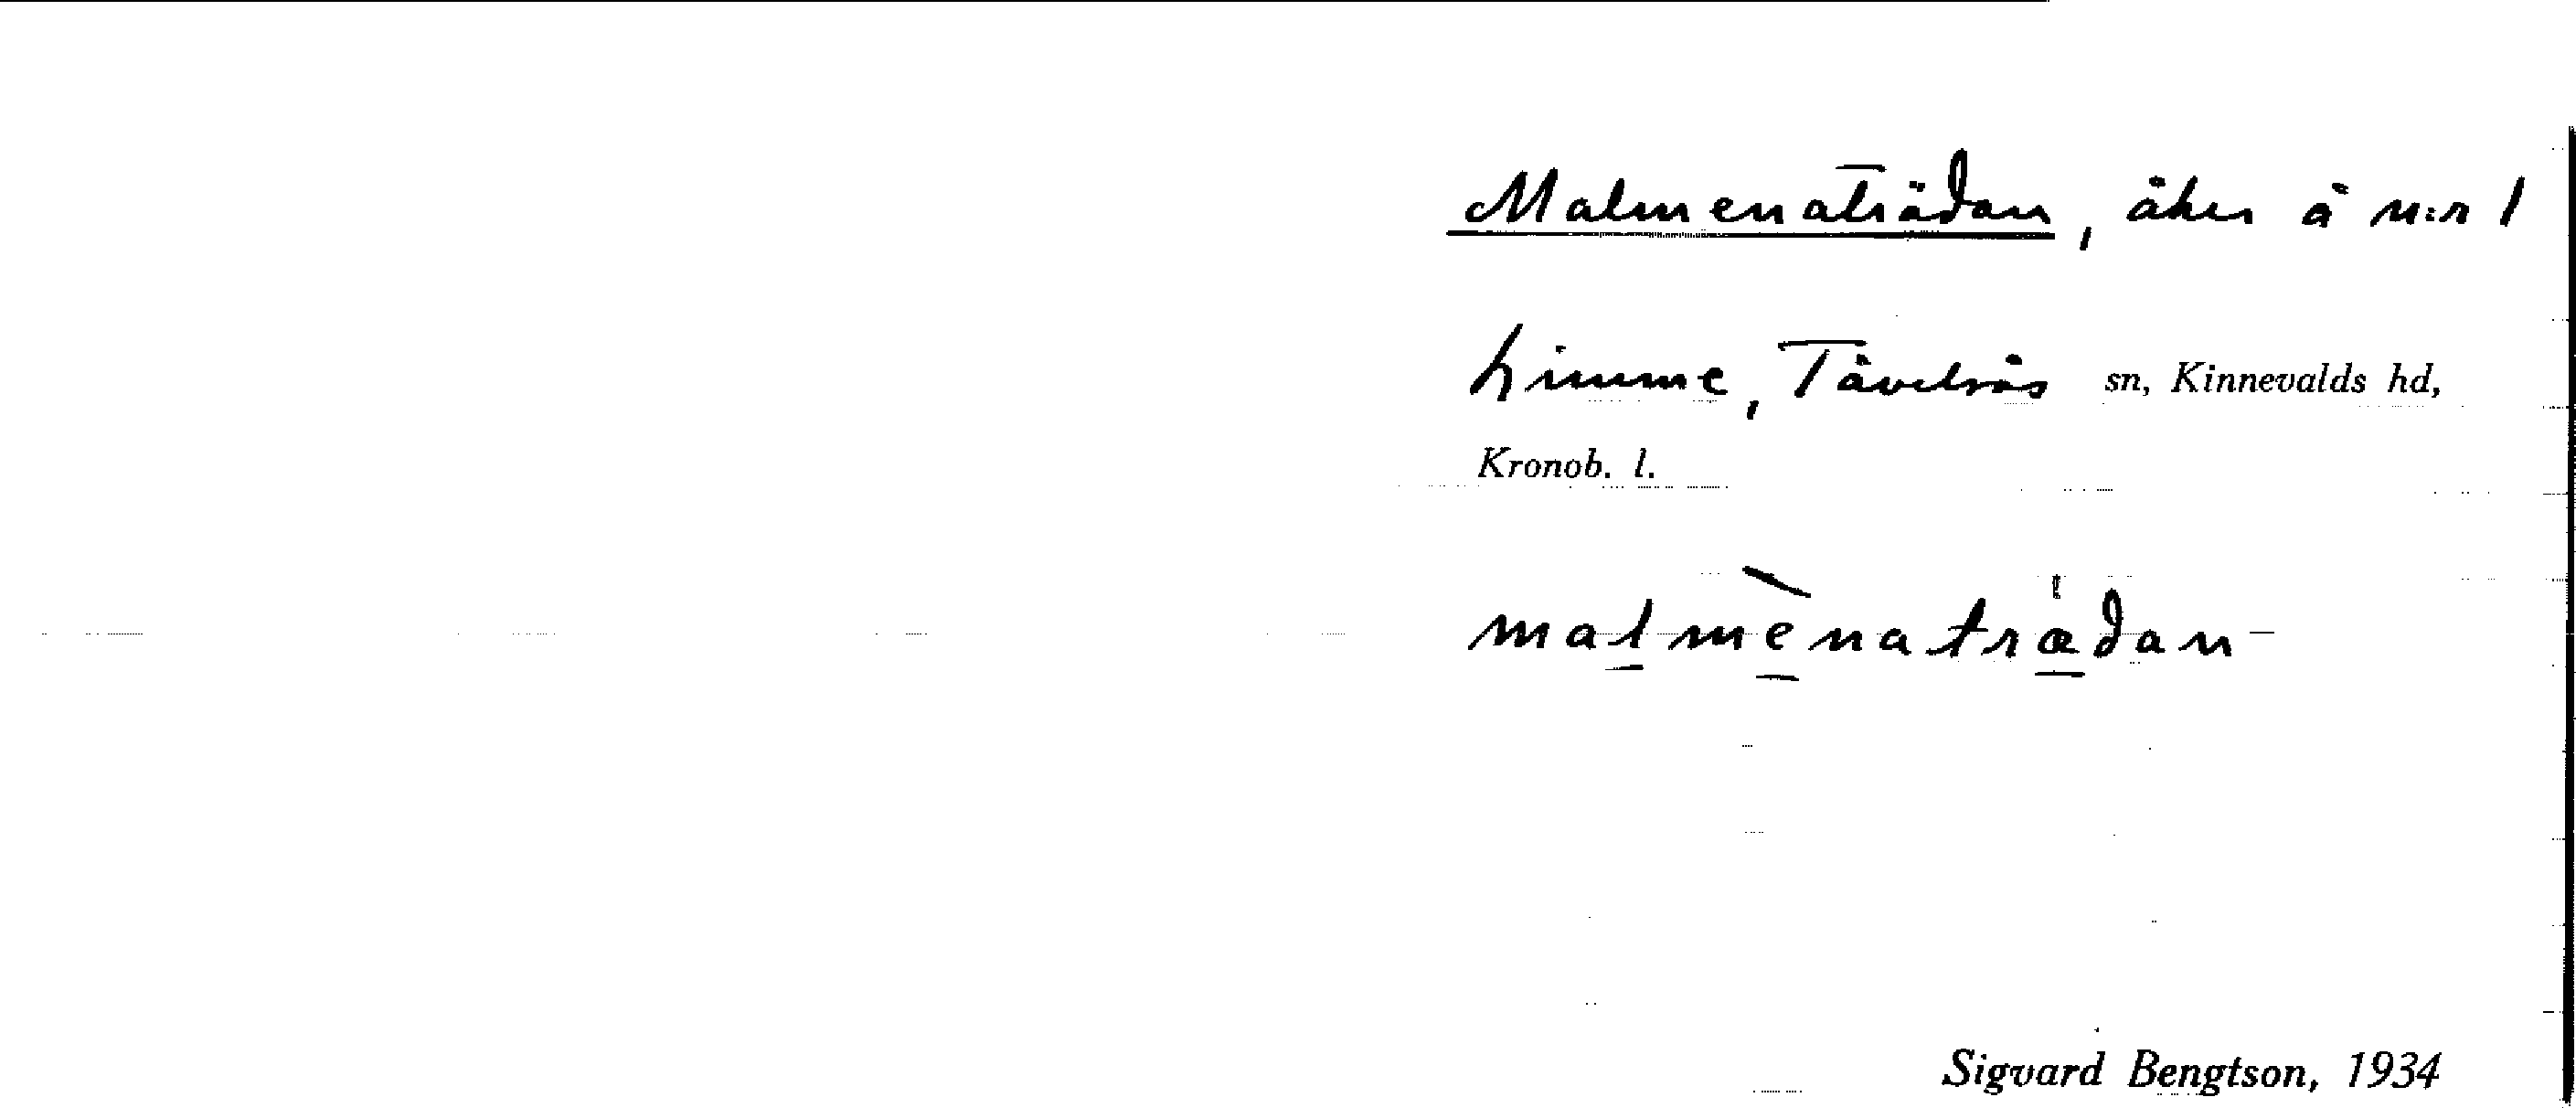 Malmenaträdan, åker å n:r 1
Linnme, Tävelsås sn, Kinnevalds hd,
Kronob. l.
malmènatrædan
Sigvard Bengtson, 1934